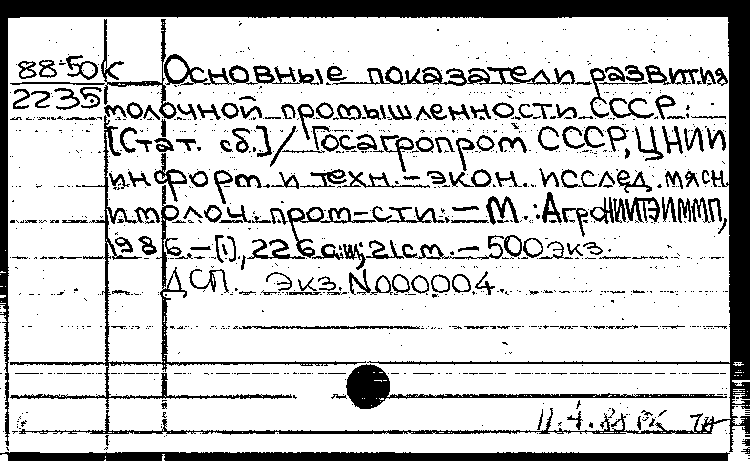 88-50К Основные показатели развития
2235 молочной промышленности СССР:
[Стат. сб.] / Госагропром СССР, ЦНИИ
информ. и техн.-экон. исслед. мясн.
и молоч. пром-сти. – М. : АгроНИИТЭИММП,
1986. – [1], 226 с.; 21 см. – 500 экз.
ДСП. Экз. N000004.
11.4.88